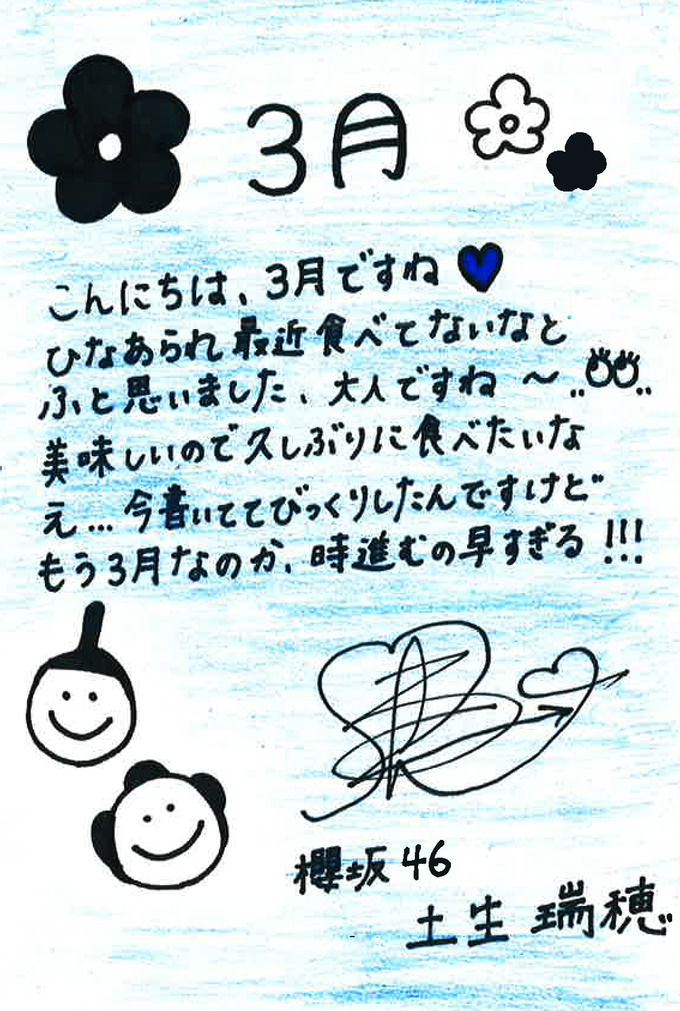 3月
こんにちは、3月ですね
ひなあられ最近食べてないなと
ふと思いました、大人ですね〜
美味しいので久しぶりに食べたいな
え...今書いててびっくりしたんですけど
もう3月なのか、時進むの早すぎる!!!
櫻坂46
土生瑞穂